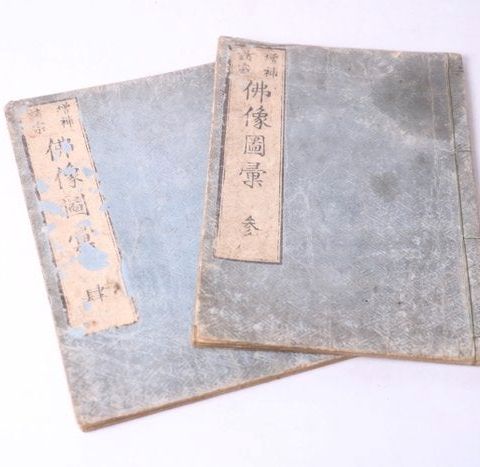 增補
諸宗
佛像圖彙 参
增補
諸宗
佛像圖彙 肆